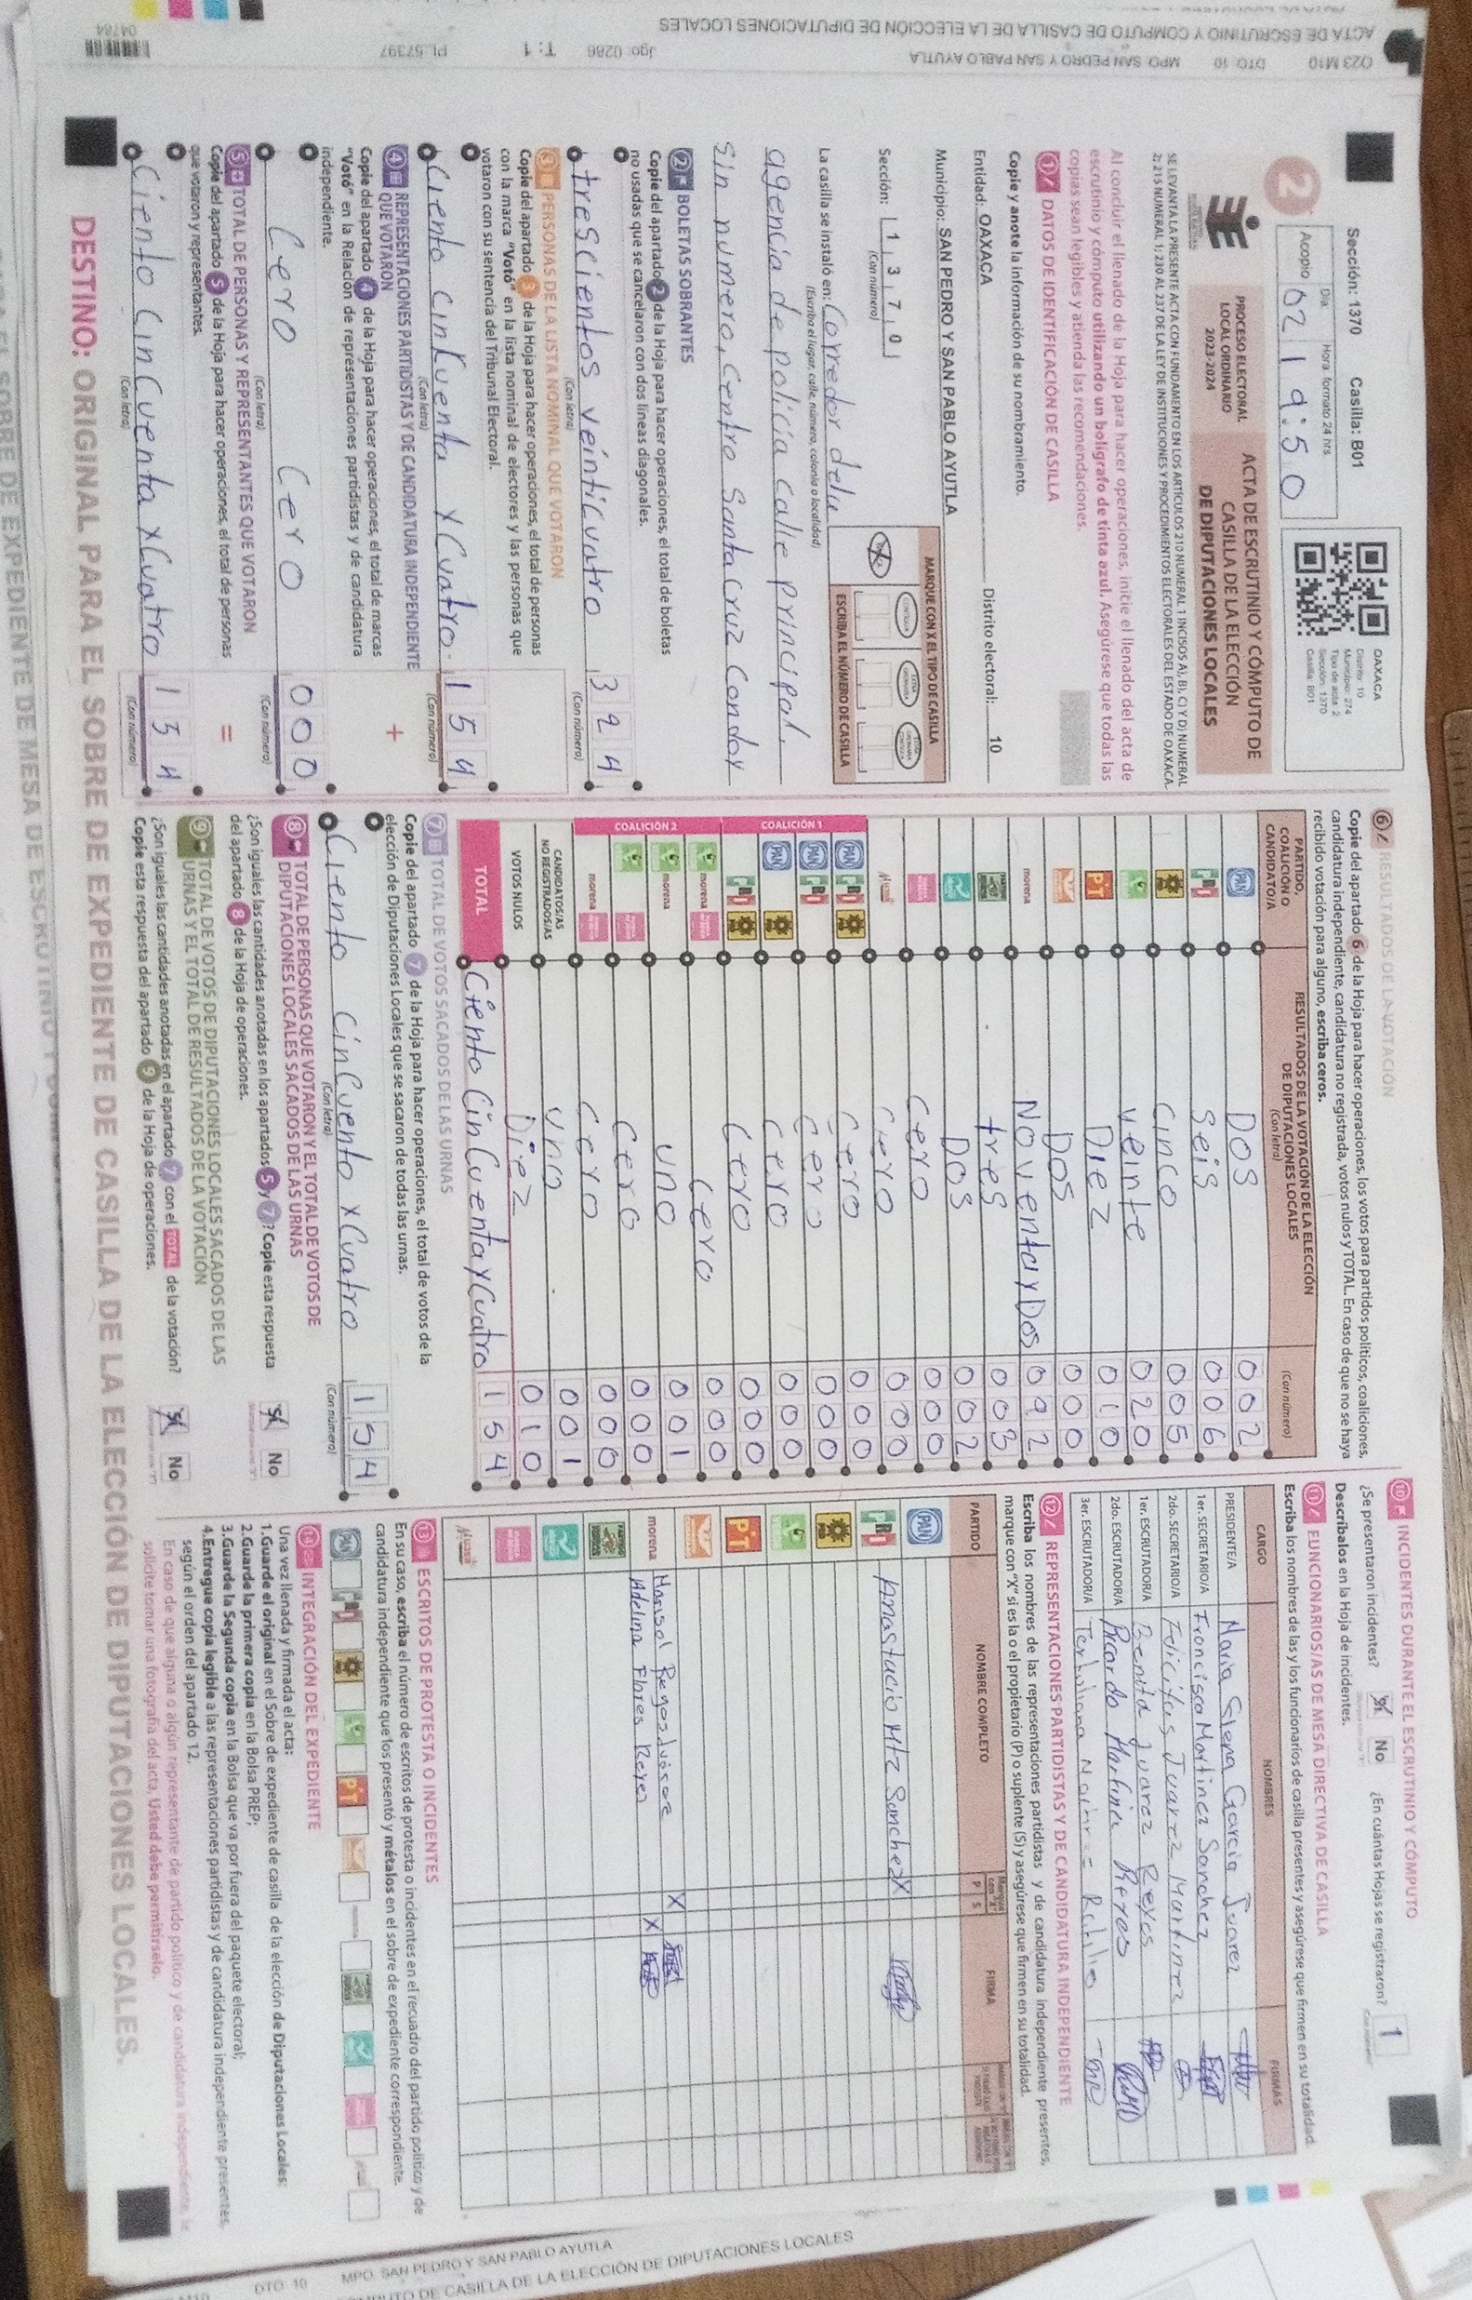 Sección: 1370 Casilla: B01
Día Hora formato 24 hrs
Acopio 02 19:50
OAXACA
Distrito: 10
Municipio: 274
Tipo de acta: 2
Sección: 1370
Casilla: B01
2
PROCESO ELECTORAL
LOCAL ORDINARIO
2023-2024
ACTA DE ESCRUTINIO Y CÓMPUTO DE
CASILLA DE LA ELECCIÓN
DE DIPUTACIONES LOCALES
SE LEVANTA LA PRESENTE ACTA CON FUNDAMENTO EN LOS ARTÍCULOS 210 NUMERAL 1 INCISOS A), B), C) Y D) NUMERAL
2; 215 NUMERAL 1; 230 AL 237 DE LA LEY DE INSTITUCIONES Y PROCEDIMIENTOS ELECTORALES DEL ESTADO DE OAXACA.
Al concluir el llenado de la Hoja para hacer operaciones, inicie el llenado del acta de
escrutinio y cómputo utilizando un bolígrafo de tinta azul. Asegúrese que todas las
copias sean legibles y atienda las recomendaciones.
1 DATOS DE IDENTIFICACIÓN DE CASILLA
Copie y anote la información de su nombramiento.
Entidad: OAXACA Distrito electoral: 10
Municipio: SAN PEDRO Y SAN PABLO AYUTLA
Sección: 1 3 7 0
(Con número)
MARQUE CON X EL TIPO DE CASILLA
ESCRIBA EL NÚMERO DE CASILLA
La casilla se instaló en: Corredor delu
(Escriba el lugar, calle, número, colonia o localidad)
agencia de policia calle principal.
sin numero, centro santa cruz condoy
2 BOLETAS SOBRANTES
Copie del apartado 2 de la Hoja para hacer operaciones, el total de boletas
no usadas que se cancelaron con dos líneas diagonales.
trescientos veinticuatro 324
(Con letra) (Con número)
3 PERSONAS DE LA LISTA NOMINAL QUE VOTARON
Copie del apartado 3 de la Hoja para hacer operaciones, el total de personas
con la marca "Votó" en la lista nominal de electores y las personas que
votaron con su sentencia del Tribunal Electoral.
Ciento cinkuenta y Cuatro. 154
(Con letra) (Con número)
4 REPRESENTACIONES PARTIDISTAS Y DE CANDIDATURA INDEPENDIENTE
QUE VOTARON +
Copie del apartado 4 de la Hoja para hacer operaciones, el total de marcas
"Votó" en la Relación de representaciones partidistas y de candidatura
independiente.
Cero Cero 000
(Con letra) (Con número)
5 TOTAL DE PERSONAS Y REPRESENTANTES QUE VOTARON =
Copie del apartado 5 de la Hoja para hacer operaciones, el total de personas
que votaron y representantes.
Ciento Cincuenta y Cuatro 154
(Con letra) (Con número)
6 RESULTADOS DE LA VOTACIÓN
Copie del apartado 6 de la Hoja para hacer operaciones, los votos para partidos políticos, coaliciones,
candidatura independiente, candidatura no registrada, votos nulos y TOTAL. En caso de que no se haya
recibido votación para alguno, escriba ceros.
PARTIDO,
COALICIÓN O
CANDIDATO/A
RESULTADOS DE LA VOTACIÓN DE LA ELECCIÓN
DE DIPUTACIONES LOCALES
(Con letra) (Con número)
PAN DOS 002
PRI Seis 006
PRD Cinco 005
veinte 020
PT Diez 010
Dos 000
morena Noventa y Dos 092
tres 003
Dos 002
Cero 000
Cero 000
COALICIÓN 1
PAN PRI PRD Cero 000
PAN PRI Cero 000
PAN PRD Cero 000
PRI PRD Cero 000
COALICIÓN 2
morena Cero 000
morena uno 001
Cero 000
morena Cero 000
CANDIDATOS/AS
NO REGISTRADOS/AS uno 001
VOTOS NULOS Diez 010
TOTAL Ciento Cincuenta y Cuatro 154
7 TOTAL DE VOTOS SACADOS DE LAS URNAS
Copie del apartado 7 de la Hoja para hacer operaciones, el total de votos de la
elección de Diputaciones Locales que se sacaron de todas las urnas.
Ciento Cincuenta y Cuatro 154
(Con letra) (Con número)
8 TOTAL DE PERSONAS QUE VOTARON Y EL TOTAL DE VOTOS DE
DIPUTACIONES LOCALES SACADOS DE LAS URNAS
¿Son iguales las cantidades anotadas en los apartados 5 y 7? Copie esta respuesta
del apartado 8 de la Hoja de operaciones. Sí No
9 TOTAL DE VOTOS DE DIPUTACIONES LOCALES SACADOS DE LAS
URNAS Y EL TOTAL DE RESULTADOS DE LA VOTACIÓN
¿Son iguales las cantidades anotadas en el apartado 7 con el TOTAL de la votación?
Copie esta respuesta del apartado 9 de la Hoja de operaciones. Sí No
10 INCIDENTES DURANTE EL ESCRUTINIO Y CÓMPUTO
¿Se presentaron incidentes? Sí No ¿En cuántas Hojas se registraron? 1
Descríbalos en la Hoja de incidentes.
11 FUNCIONARIOS/AS DE MESA DIRECTIVA DE CASILLA
Escriba los nombres de las y los funcionarios de casilla presentes y asegúrese que firmen en su totalidad.
CARGO NOMBRES FIRMAS
PRESIDENTE/A Maria Elena Garcia Juarez
1er. SECRETARIO/A Francisca Martinez Sanchez
2do. SECRETARIO/A Felicitas Juarez Martinez
1er. ESCRUTADOR/A Benita Juarez Reyes
2do. ESCRUTADOR/A Ricardo Martinez Reyes
3er. ESCRUTADOR/A
12 REPRESENTACIONES PARTIDISTAS Y DE CANDIDATURA INDEPENDIENTE
Escriba los nombres de las representaciones partidistas y de candidatura independiente presentes,
marque con "X" si es la o el propietario (P) o suplente (S) y asegúrese que firmen en su totalidad.
PARTIDO NOMBRE COMPLETO P S FIRMA
PAN
PRI Anastacio Mtz Sanchez X
PRD
PT
morena Marisol Reyes X
Adelina Flores Reyes X
13 ESCRITOS DE PROTESTA O INCIDENTES
En su caso, escriba el número de escritos de protesta o incidentes en el recuadro del partido político y de
candidatura independiente que los presentó y métalos en el sobre de expediente correspondiente.
PAN PRI PRD PT
14 INTEGRACIÓN DEL EXPEDIENTE
Una vez llenada y firmada el acta:
1.Guarde el original en el Sobre de expediente de casilla de la elección de Diputaciones Locales;
2.Guarde la primera copia en la Bolsa PREP;
3.Guarde la Segunda copia en la Bolsa que va por fuera del paquete electoral;
4.Entregue copia legible a las representaciones partidistas y de candidatura independiente presentes,
según el orden del apartado 12.
En caso de que alguna o algún representante de partido político y de candidatura independiente le
solicite tomar una fotografía del acta, Usted debe permitírselo.
DESTINO: ORIGINAL PARA EL SOBRE DE EXPEDIENTE DE CASILLA DE LA ELECCIÓN DE DIPUTACIONES LOCALES.
O23 M10 DTO: 10 MPO: SAN PEDRO Y SAN PABLO AYUTLA Jgo: 0286 T: 1 PL: 57397 04784
ACTA DE ESCRUTINIO Y COMPUTO DE CASILLA DE LA ELECCIÓN DE DIPUTACIONES LOCALES
DTO: 10 MPO: SAN PEDRO Y SAN PABLO AYUTLA
DE CASILLA DE LA ELECCIÓN DE DIPUTACIONES LOCALES
DE EXPEDIENTE DE MESA DE ESCRUTINIO Y